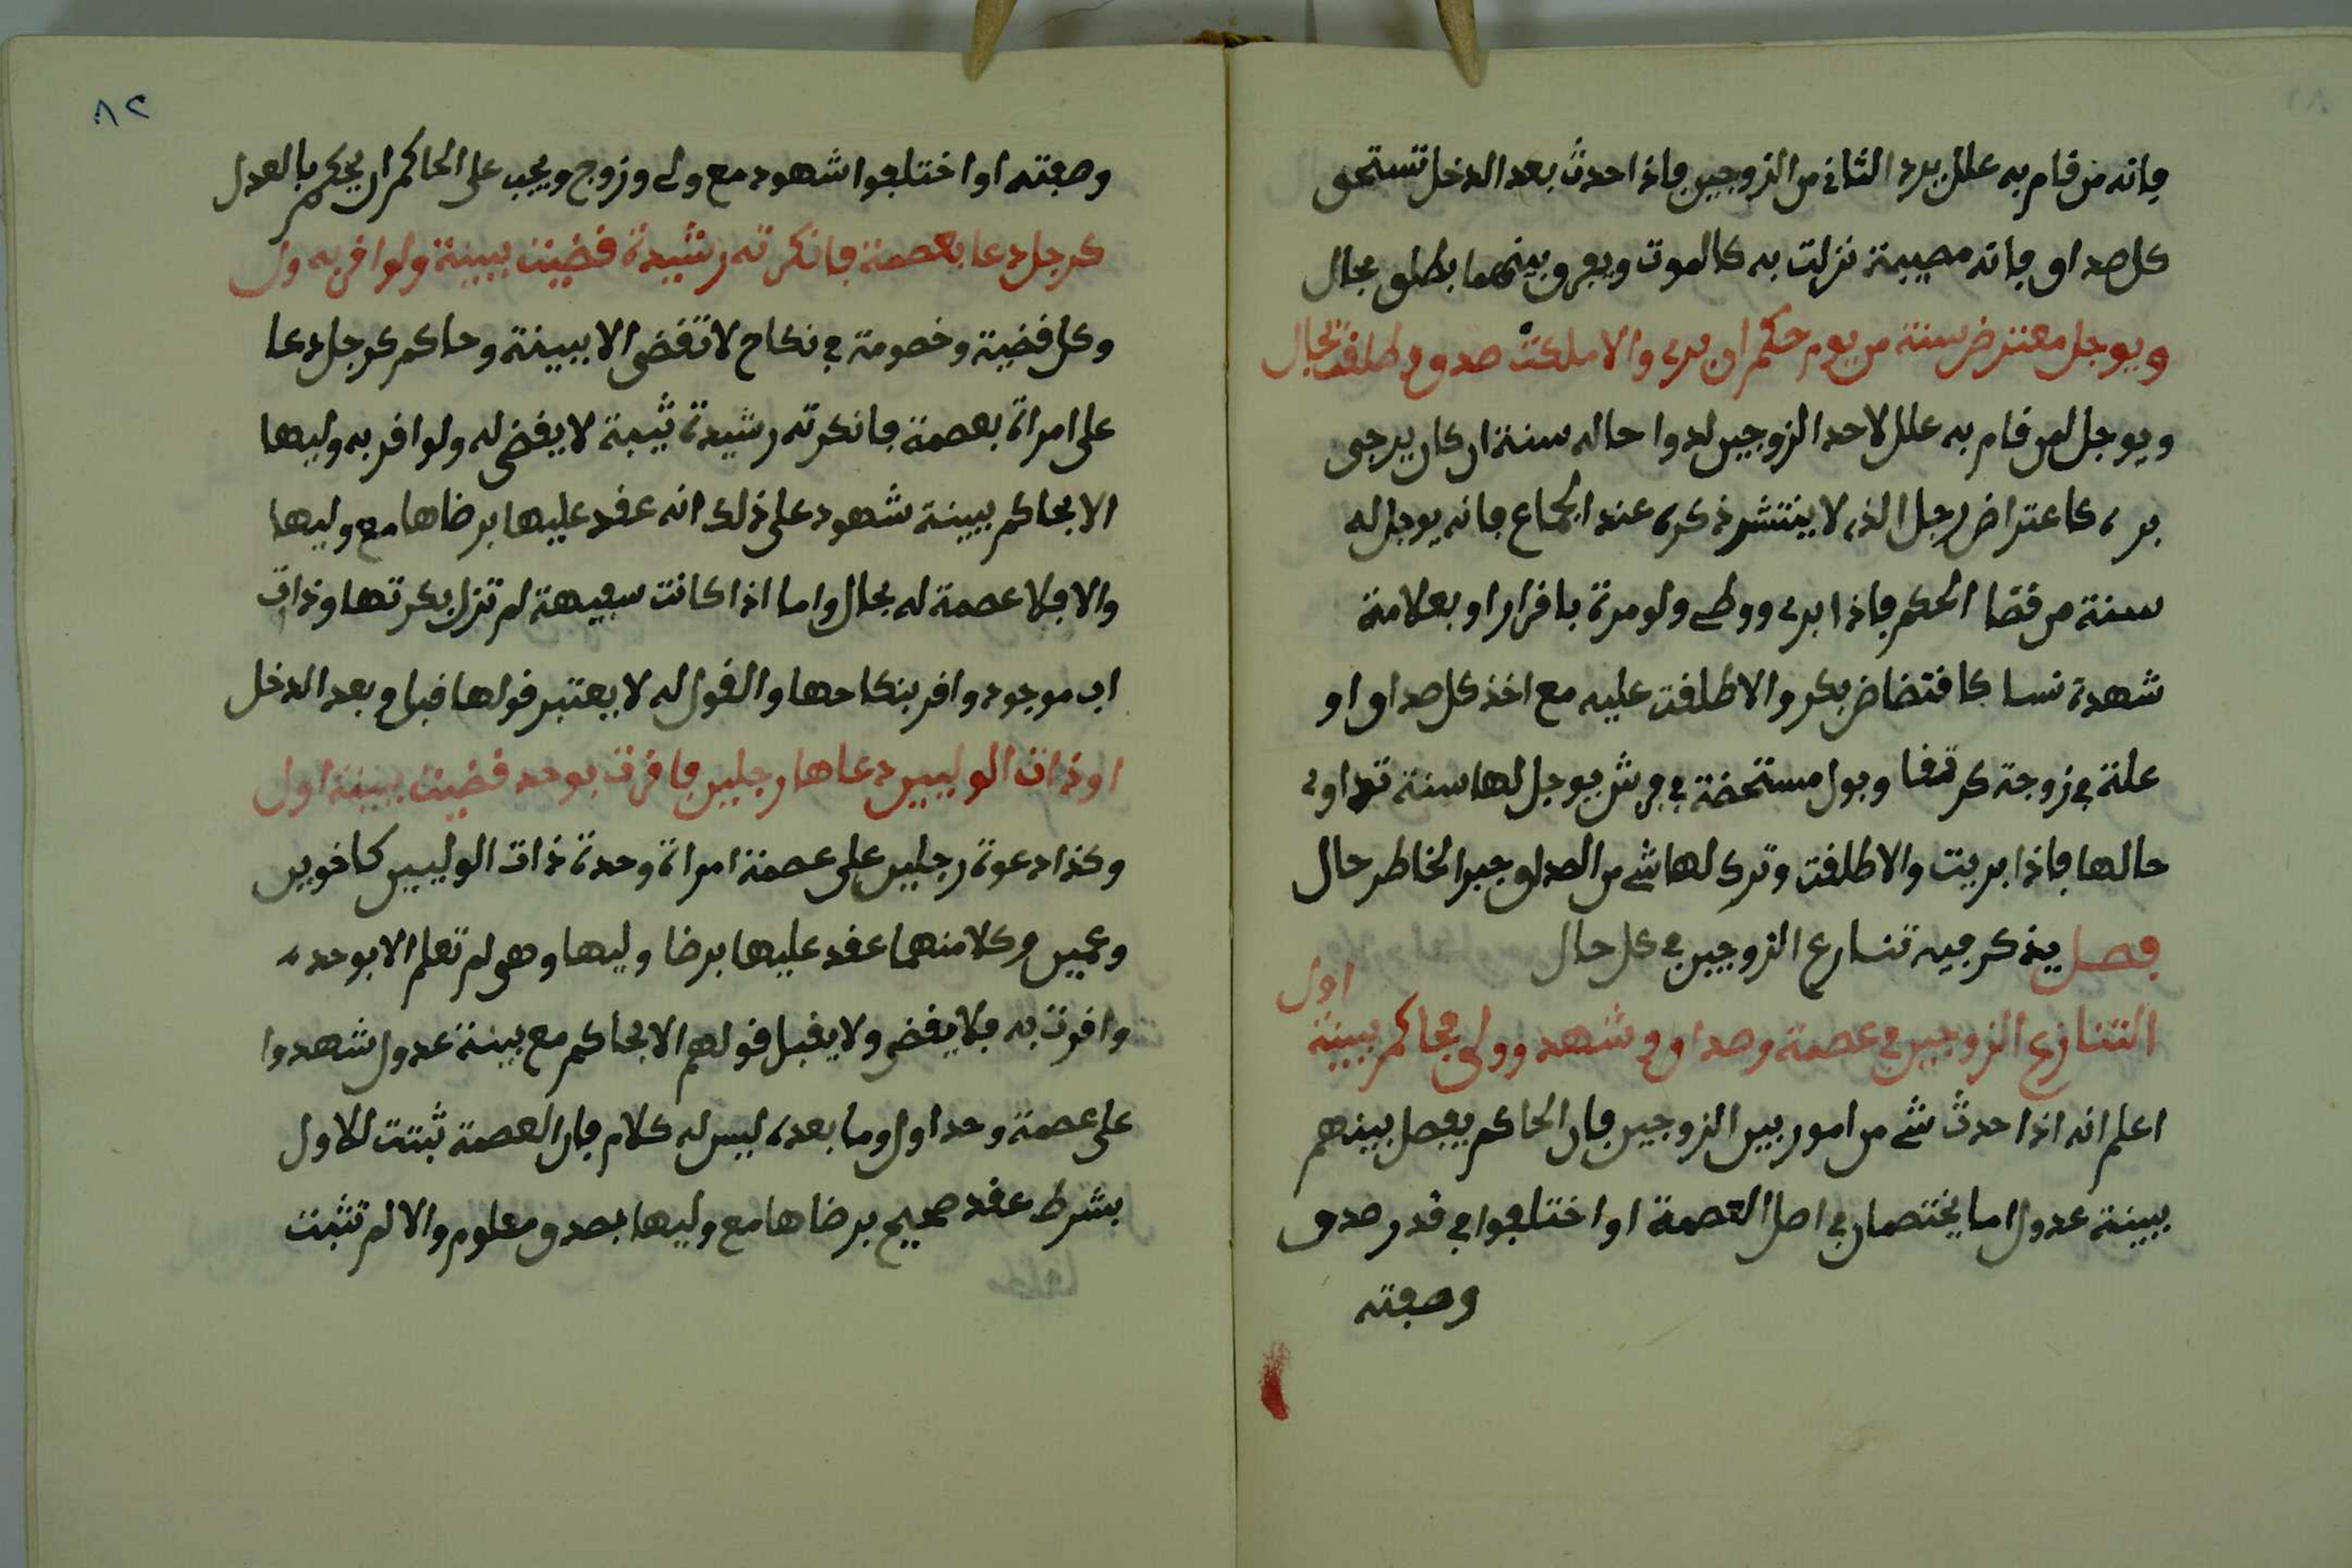 فانه من قام به علل يرد الثاني من الزوجين فاذا حدث بعد الدخل تستحق
كل صداق فانه مصيبة نزلت به كالموت ويفرق بينهما بطلق بحال
ويوجل معترض سنة من يوم حكم ان برى والا ملكت صدق طلقت بحال
ويوجل لمن قام به علل لاحد الزوجين لدوا حاله سنة ان كان يرجى
برء كاعتراض رجل الذى لا ينتشر ذكره عند الجماع فانه يوجل له
سنة من قضا الحكم فاذا برى ووطى ولو مرة باقرار او بعلامة
شهدة نسا كافتضاض بكر والا طلقت عليه مع اخذ كل صداق او
علة في زوجة كرتقا وبول مستحضة في فرش يوجل لها سنة تداوى
حالها فاذا بريت والا طلقت وترك لها شى من الصداق جبر الخاطر حال
فصل يذكر فيه تنازع الزوجين في كل حال
اول
التنازع الزوجين في عصمة وصداق وشهد وولى بحاكم ببينة
اعلم انه اذا حدث شى من امور بين الزوجين فان الحاكم يفصل بينهم
ببينة عدول اما يختصمان في اصل العصمة او اختلفوا في قدر صدق
وصفته
٨٢
وصفته او اختلفوا شهود مع ولى وزوج ويجب على الحاكم ان يحكم بالعدل
كرجل دعا بعصمة فانكرته رشيدة قضيت ببينة ولو اقر به ول
وكل قضية وخصومة في نكاح لا تقضى الا ببينة وحاكم كرجل دعا
على امراة بعصمة فانكرته رشيدة ثيبة لا يقضى له ولو اقر به وليها
الا بحاكم ببينة شهود على ذلك انه عقد عليها برضاها مع وليها
والا فلا عصمة له بحال واما اذا كانت سفيهة لم تزل بكرتها وذات
اب موجود واقر بنكاحها والقول له لا يعتبر قولها قبل وبعد الدخل
او ذات الوليين دعاها رجلين فاقرت بوحد قضيت ببينة اول
وكذا دعوة رجلين على عصمة امراة وحدة ذات الوليين كاخوين
وعمين وكلا منهما عقد عليها برضا وليها وهى لم تعلم الا بوحده
واقرت به فلا يقضى ولا يقبل قولهم الا بحاكم مع بينة عدول شهدوا
على عصمة وحد اول وما بعده ليس له كلام فان العصمة ثبتت للاول
بشرط عقد صحيح برضاها مع وليها بصدق معلوم والا لم تثبت